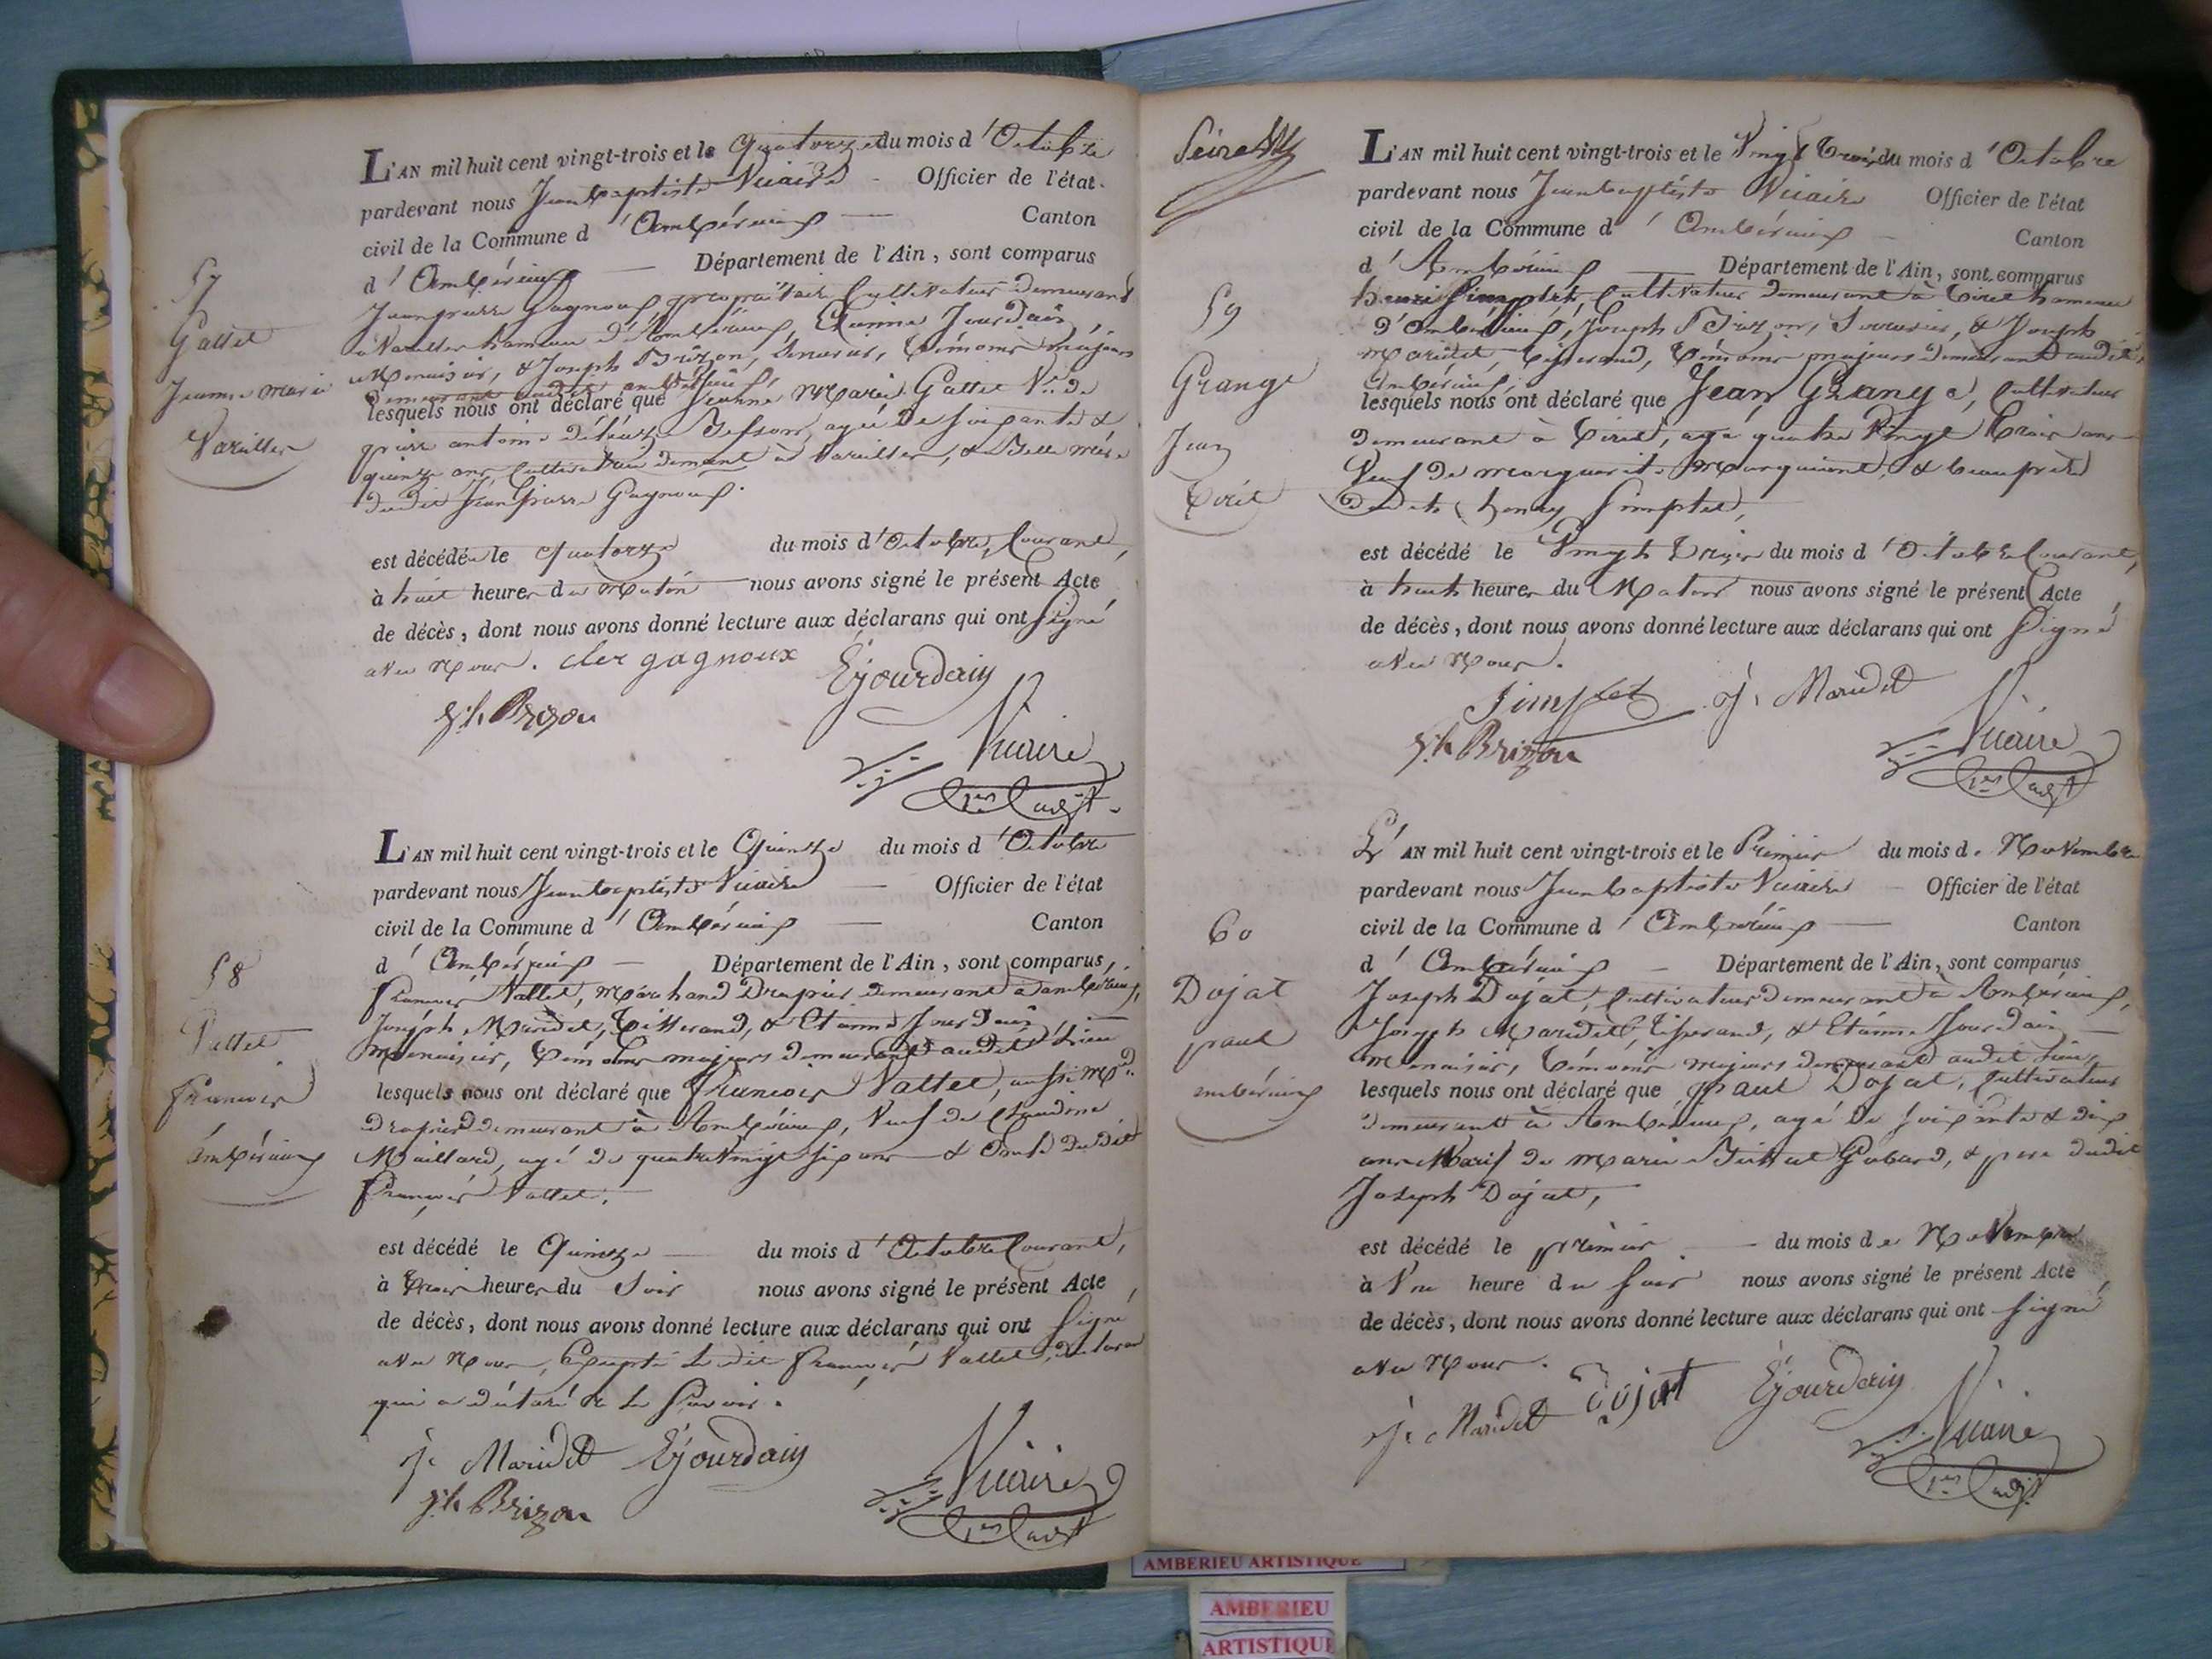 L'AN mil huit cent vingt-trois et le Quatorze du mois d'Octobre
pardevant nous Jean baptiste Vicaire Officier de l'état
civil de la Commune d'Ambérieux Canton
d'Ambérieux Département de l'Ain, sont comparus
57
Gallet
Jeanne marie
Vareilles
Jeanpierre Gagnoux, propriétaire Cultivateur demeurant
à Vareilles hameau d'Ambérieux, Etienne Jourdain
Menuisier, & Joseph Brizon, Serrurier, témoins majeurs
demeurant audit ambérieux,
lesquels nous ont déclaré que Jeanne Marie Gallet Ve. de
pierre antoine Besson, agée de soixante &
quinze ans, Cultivatrice demt à Vareilles, & Belle mère
dudit Jean Pierre Gagnoux.
est décédée le quatorze du mois d'Octobre, Courant,
à huit heures du Matin nous avons signé le présent Acte
de décès, dont nous avons donné lecture aux déclarans qui ont Signé
avec Nous. cler gagnoux EJourdain
Jh Brizon
Vicaire
L'AN mil huit cent vingt-trois et le Quinze du mois d'Octobre
pardevant nous Jean baptiste Vicaire Officier de l'état
civil de la Commune d'Ambérieux Canton
d'Ambérieux Département de l'Ain, sont comparus,
58
Vallet
francois
Ambérieux
francois Vallet, Marchand Drapier demeurant à ambérieux,
Joseph Maridet, Tisserand, & Etienne Jourdain
menuisier, témoins majeurs demeurant audit Lieu
lesquels nous ont déclaré que francois Vallet, aussi Md.
drapier demeurant à Ambérieux, Veuf de Claudine
Maillard, agé de quatre Vingt six ans & dudit
francois Vallet,
est décédé le Quinze du mois d'Octobre Courant,
à trois heures du Soir nous avons signé le présent Acte,
de décès, dont nous avons donné lecture aux déclarans qui ont Signé
avec Nous, Excepté ledit francois Vallet,
qui a déclaré ne le Savoir.
J. Maridet EJourdain
Jh Brizon
Vicaire
L'AN mil huit cent vingt-trois et le Vingt Trois du mois d'Octobre
pardevant nous Jean baptiste Vicaire Officier de l'état
civil de la Commune d'Ambérieux Canton
d'Ambérieux Département de l'Ain, sont comparus
59
Grange
Jean
Tiret
henri Simplet, Cultivateur demeurant à Tiret hameau
d'Ambérieux, Joseph Brizon, Serrurier, & Joseph
Maridet, Tisserand, témoins majeurs demeurant audit
Ambérieux,
lesquels nous ont déclaré que Jean Grange, Cultivateur
demeurant à Tiret, agé quatre Vingt Trois ans
Veuf de marguerite & beaupère
dudit henry Simplet,
est décédé le Vingt Trois du mois d'Octobre Courant,
à huit heures du Matin nous avons signé le présent Acte
de décès, dont nous avons donné lecture aux déclarans qui ont Signé
avec Nous.
Simplet J. Maridet
Jh Brizon
Vicaire
L'AN mil huit cent vingt-trois et le Premier du mois de Novembre
pardevant nous Jean baptiste Vicaire Officier de l'état
civil de la Commune d'Ambérieux Canton
d'Ambérieux Département de l'Ain, sont comparus
60
Dojat
paul
ambérieux
Joseph Dojat, Cultivateur demeurant à Ambérieux,
Joseph Maridet, Tisserand, & Etienne Jourdain
menuisier, témoins majeurs demeurant audit Lieu,
lesquels nous ont déclaré que paul Dojat, Cultivateur
demeurant à Ambérieux, agé de soixante & dix
ans Mari de marie Gobard, & père dudit
Joseph Dojat,
est décédé le premier du mois de Novembre
à Une heure du Soir nous avons signé le présent Acte,
de décès, dont nous avons donné lecture aux déclarans qui ont Signé
avec Nous.
J. Maridet Dojat EJourdain
Vicaire
AMBERIEU ARTISTIQUE
AMBERIEU
ARTISTIQUE